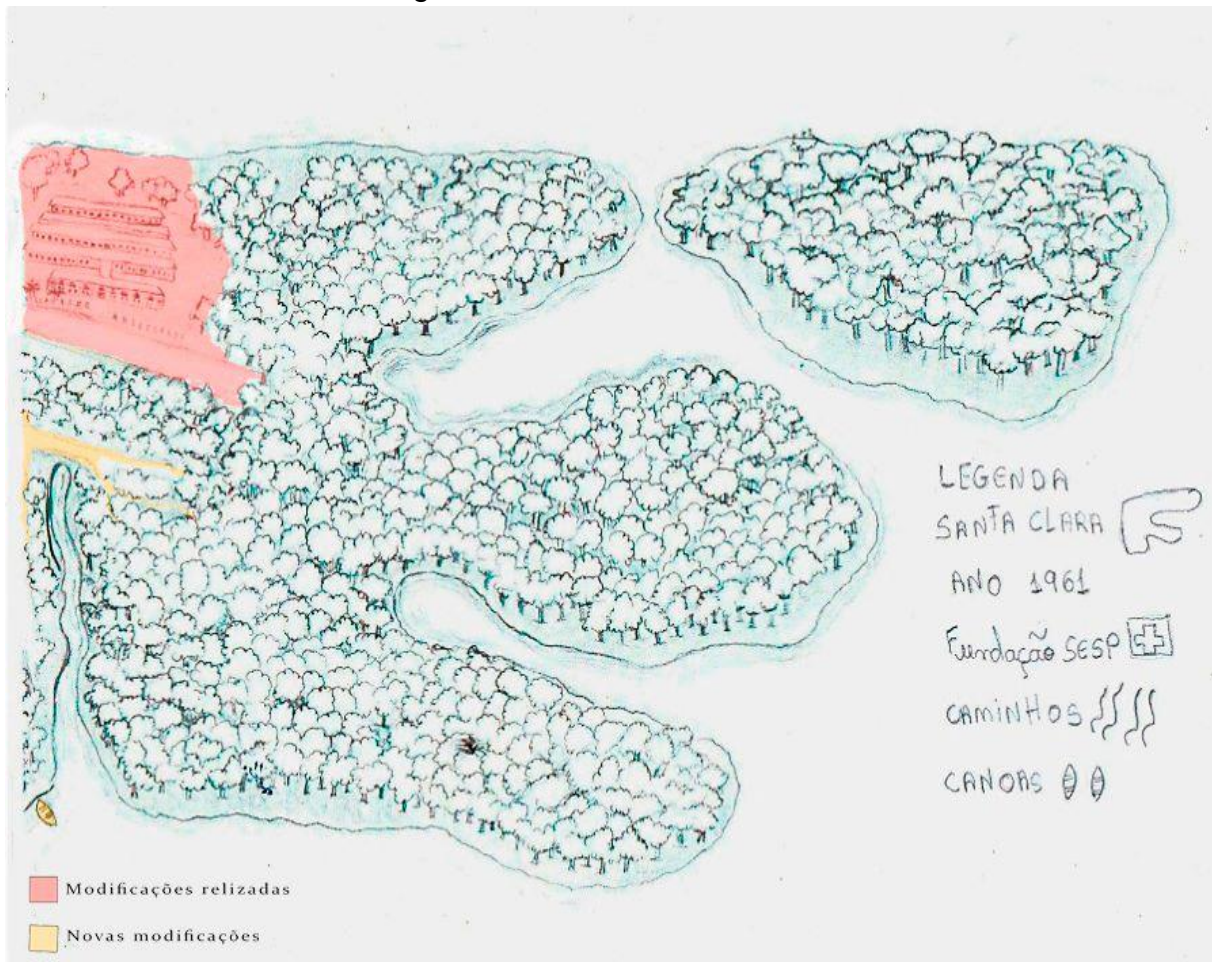 LEGENDA
SANTA CLARA
ANO 1961
Fundação SESP
CAMINHOS
CANOAS
Modificações relizadas
Novas modificações